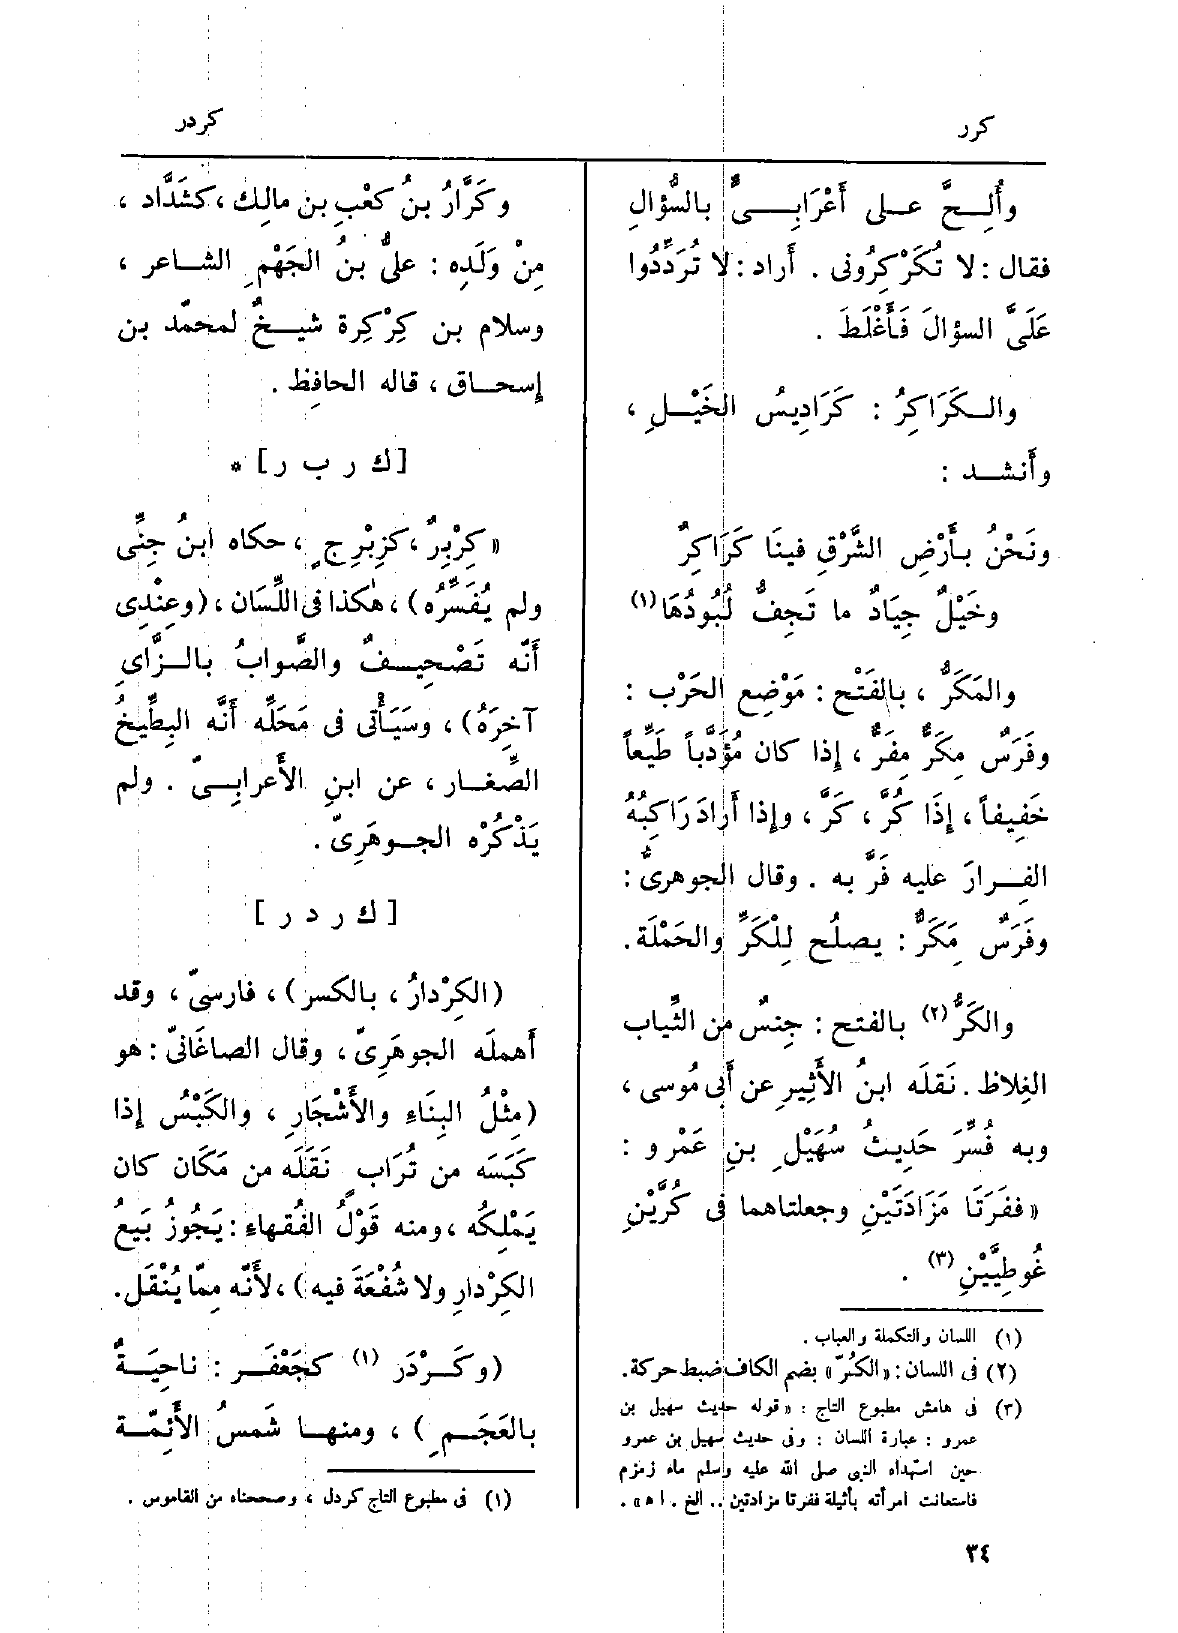 كرر
كردر
وأُلِـحَّ علـى أَعْرَابِـىٍّ بالسُّؤالِ
فقال : لا تُكَرْكِرُونى . أراد : لا تُرَدِّدُوا
عَلَىَّ السؤالَ فَأَغْلَطَ .
والـكَرَاكِرُ : كَرَادِيسُ الخَيْـلِ ،
وأَنشـد :
ونَحْنُ بأَرْضِ الشَّرْقِ فينَا كَرَاكِرٌ
وخَيْلٌ جِيَادٌ ما تَجِفُّ لُبُودُهَا (١)
والمَكَرُّ ، بالفَتْح : مَوْضِع الحَرْب :
وفَرَسٌ مِكَرٌّ مِفَرٌّ ، إذا كان مُؤَدَّباً طَيِّعاً
خَفِيفاً ، إِذَا كُرَّ ، كَرَّ ، وإذا أَرادَ رَاكِبُهُ
الفِـرارَ عليه فَرَّ به . وقال الجوهرىُّ :
وفَرَسٌ مِكَرٌّ : يصلُح لِلْكَرِّ والحَمْلَة .
والكَرُّ (٢) بالفتح : جِنسٌ من الثِّياب
الغِلاظ . نَقلَه ابنُ الأَثِيرِ عن أَبى مُوسى ،
وبه فُسِّرَ حَدِيثُ سُهَيْلِ بنِ عَمْرو :
« ففَرَتَا مَزَادَتَيْنِ وجعلتاهما فى كُرَّيْنِ
غُوطِيَّيْنِ (٣) .
(١) اللسان والتكملة والعباب .
(٢) فى اللسان : « الكُرّ » بضم الكاف ضبط حركة .
(٣) فى هامش مطبوع التاج : « قوله حديث سهيل بن
عمرو : عبارة اللسان : وفى حديث سهيل بن عمرو
حين استهداه النبى صلى الله عليه وسلم ماء زمزم
فاستعانت امرأته بأثيلة ففرتا مزادتين .. الخ . ا ه » .
وكَرَّارُ بنُ كعْبِ بن مالِك ، كشَدَّاد ،
مِنْ وَلَدِه : علىُّ بنُ الجَهْمِ الشـاعر ،
وسلام بن كِرْكِرة شيـخٌ لمحمّد بن
إسحـاق ، قاله الحافِظ .
[ ك ر ب ر ] *
« كِرْبِرٌ ، كزِبْرِجٍ ، حكاه ابنُ جِنِّى
ولم يُفَسِّرُه ) ، هٰكذا فى اللِّسَان ، ( وعِنْدِى
أَنّه تَصْحِيـفٌ والصَّوابُ بالـزَّاىِ
آخِرَهُ ) ، وسَيَأْتى فى مَحَلِّه أَنَّه البِطِّيخُ
الصِّغـار ، عن ابنِ الأَعرابـىّ . ولم
يَذْكُرْه الجـوهَرِىّ .
[ ك ر د ر ]
( الكِرْدارُ ، بالكسر ) ، فارسىّ ، وقد
أهملَه الجوهَرِىّ ، وقال الصاغَانىّ : هو
( مِثْلُ البِنَاءِ والأَشْجَارِ ، والكَبْسُ إذا
كَبَسَه من تُرَاب نَقَلَه من مَكَان كان
يَمْلِكُه ، ومنه قَوْلُ الفُقهاءِ : يَجُوزُ بَيعُ
الكِرْدارِ ولا شُفْعَةَ فيه ) ، لأَنَّه مِمّا يُنْقَل .
( وكَـرْدَر (١) كجَعْفَـر : ناحِيَـةٌ
بالعَجَـمِ ) ، ومنهـا شَمسُ الأَئِمَّـة
(١) فى مطبوع التاج كردل ، وصححناه من القاموس .
٣٤